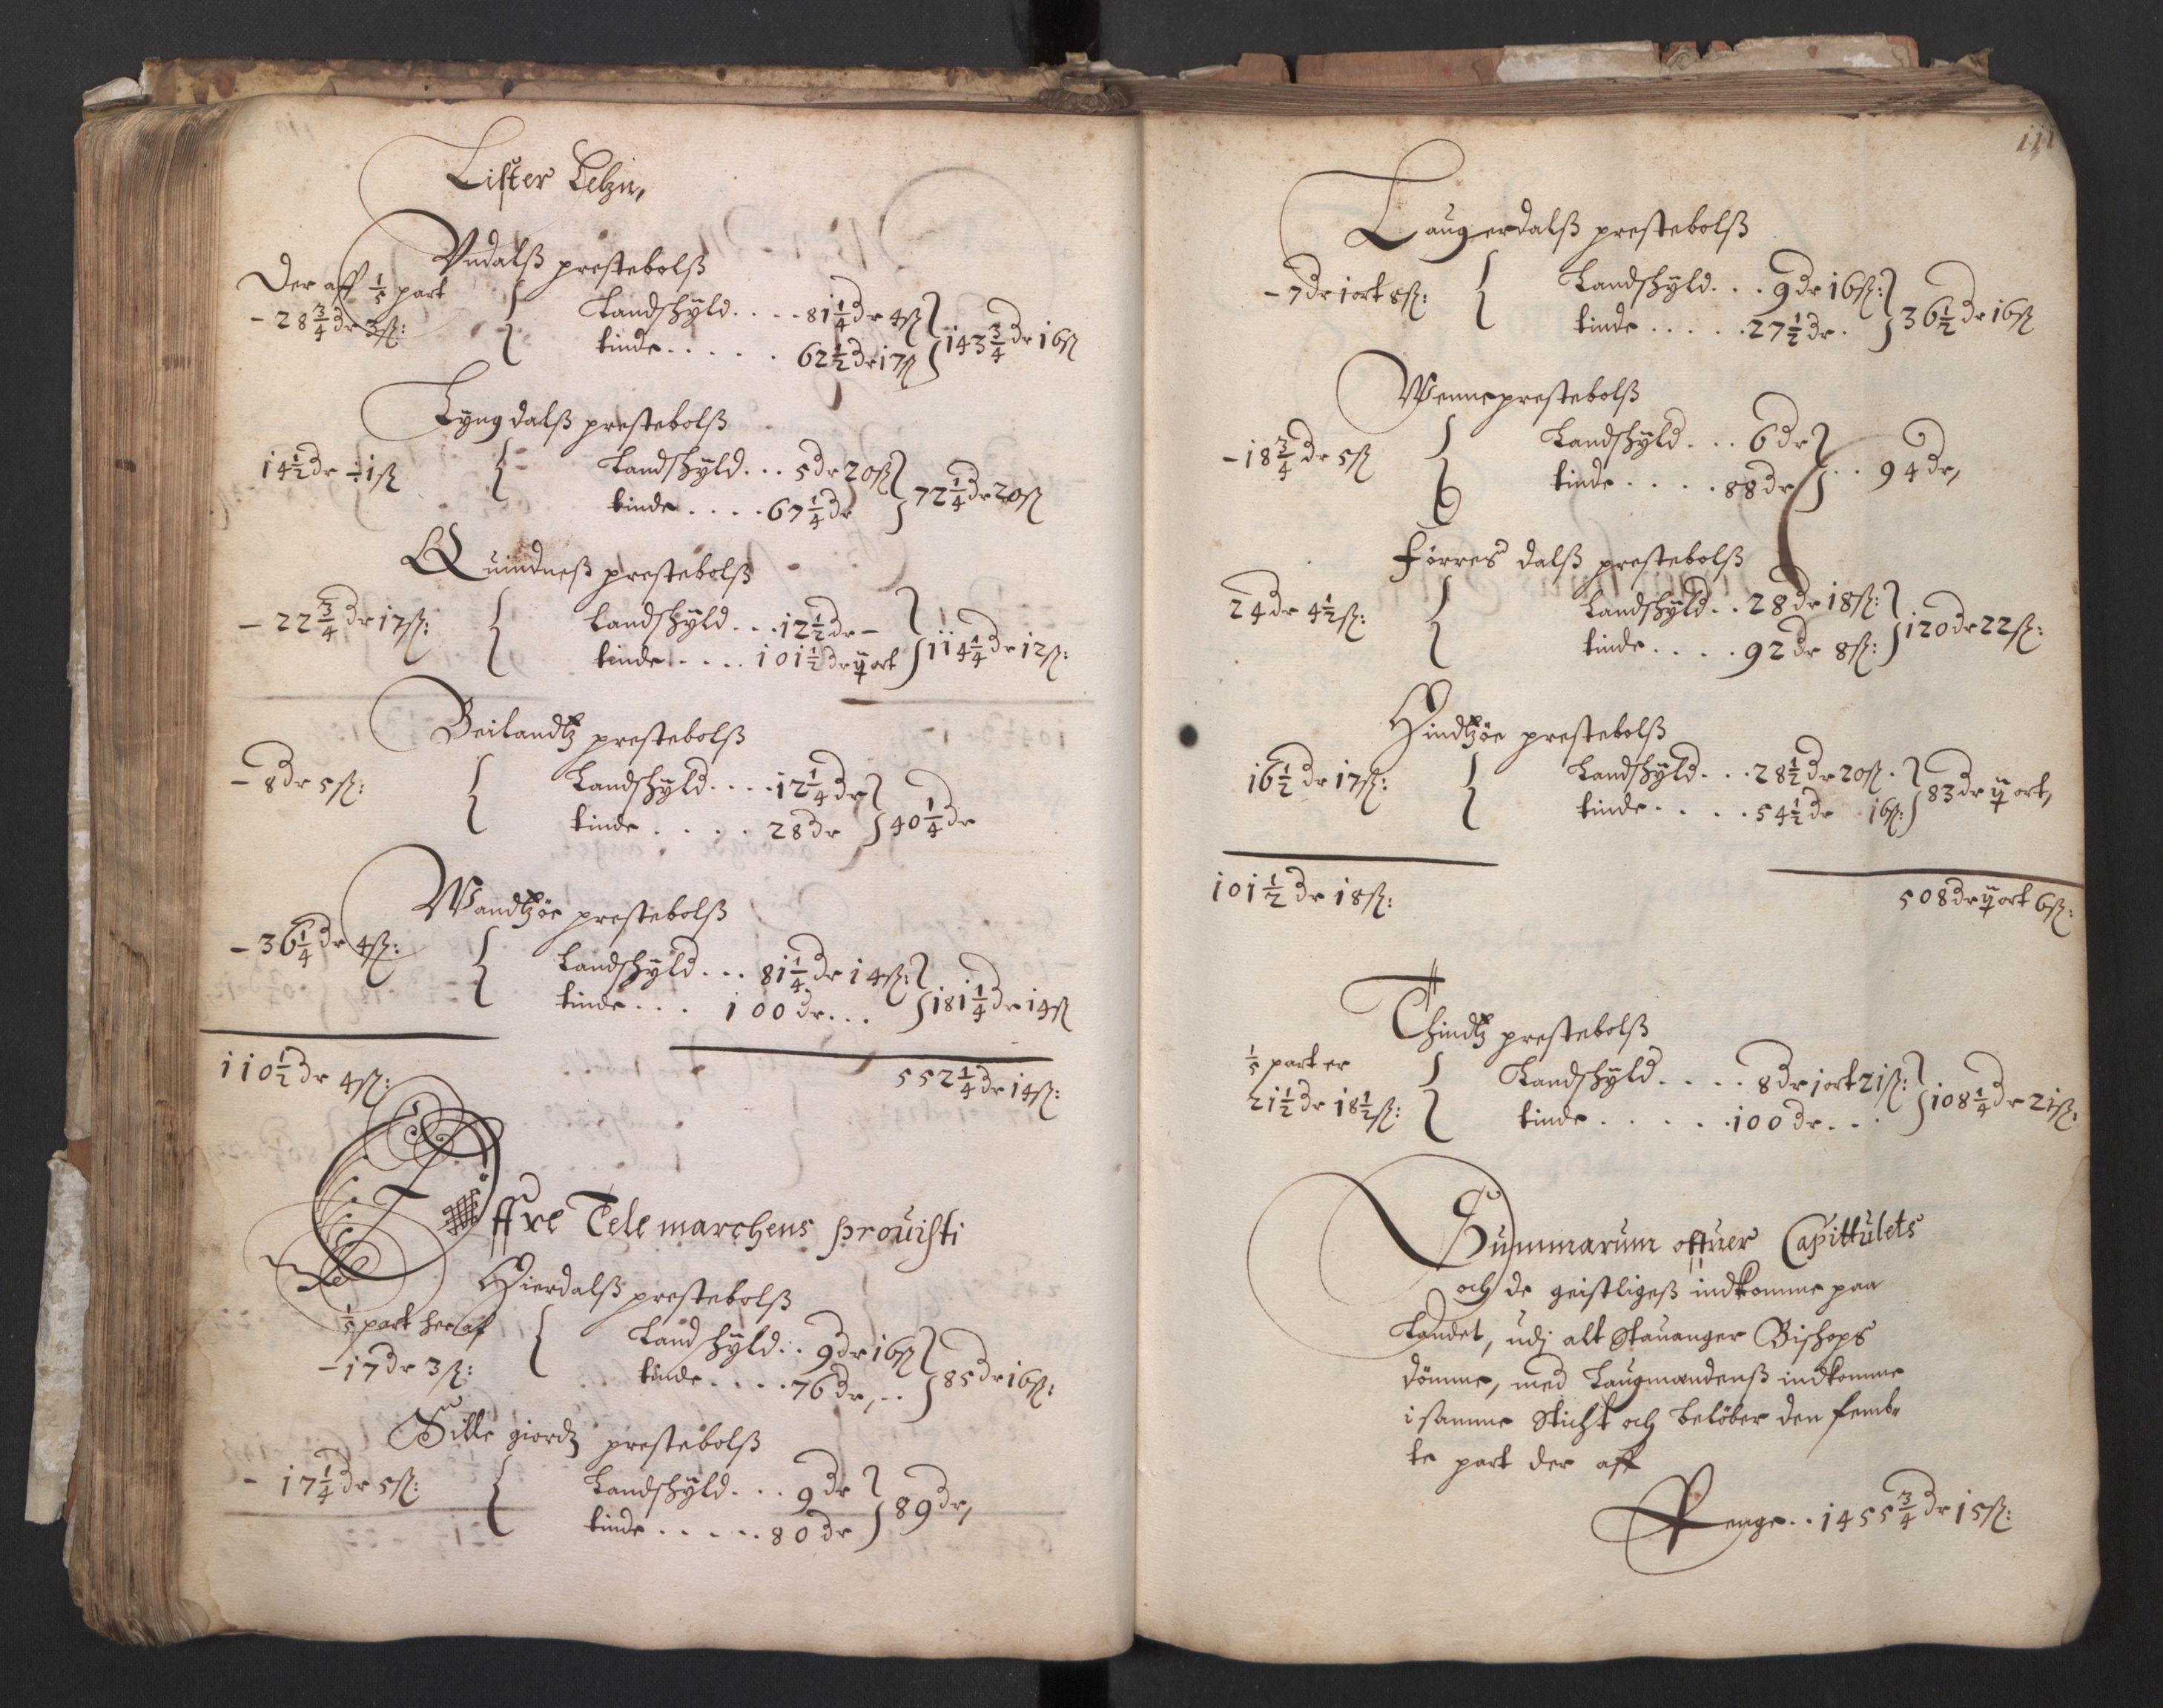 Lister Lehn,
Undalß prestebolß
Der aff 1/5 part
- 28 3/4 dr 3ß:
Landschyld.... 81 1/4 dr 4ß
tinde..... 62 1/2 dr 17ß
143 3/4 dr 16ß
Lyngdalß prestebolß
14 1/2 dr ÷ 1ß
Landschyld... 5 dr 20ß
tinde.... 67 1/4 dr
72 1/4 dr 20ß
Quindneß prestebolß
- 22 3/4 dr 17ß:
Landschyld... 12 1/2 dr -
tinde.... 101 1/2 dr ij ort
114 1/4 dr 12ß:
Beilandtz prestebolß
- 8 dr 5ß:
Landschyld.... 12 1/4 dr
tinde.... 28 dr
40 1/4 dr
Wandtzöe prestebolß
- 36 1/4 dr 4ß:
Landschyld... 81 1/4 dr 14ß:
tinde... 100 dr...
181 1/4 dr 14ß
110 1/2 dr 4ß:
552 1/4 dr 14ß:
Offre Telemarchens prouisti
Hierdalß prestebolß
1/5 part her af
- 17 dr 3ß:
Landschyld.. 9 dr 16ß
tinde.... 76 dr,..
85 dr 16ß:
Sille giordz prestebolß
- 17 1/4 dr 5ß:
Landschyld... 9 dr
tinde..... 80 dr
89 dr,
111
Laugerdalß prestebolß
- 7 dr 1 ort 8ß:
Landschyld... 9 dr 16ß:
tinde..... 27 1/2 dr.
36 1/2 dr 16ß
Wenneprestebolß
- 18 3/4 dr 5ß
Landschyld... 6 dr
tinde.... 88 dr
.. 94 dr,
Førres dalß prestebolß
24 dr 4 1/2 ß:
Landschyld.. 28 dr 18ß:
tinde.... 92 dr 8ß:
120 dr 22ß:
Hindtzöe prestebolß
16 1/2 dr 17ß:
Landschyld... 28 1/2 dr 20ß.
tinde.... 54 1/2 dr 16ß:
83 dr ij ort,
101 1/2 dr 18ß:
508 dr ij ort 6ß:
Thindtz prestebolß
1/5 part er
21 1/2 dr 18 1/2 ß:
Landschyld.... 8 dr 1 ort 21ß:
tinde..... 100 dr...
108 1/4 dr 21ß:
Summarum offuer Capittulets
och de geistligeß indkomme paa
Landet, udj alt Stauanger Bishops
dömme, med Laugmandenß indkomme
i samme Sticht och belöber den femb-
te part der aff
Penge.. 1455 3/4 dr 15ß: